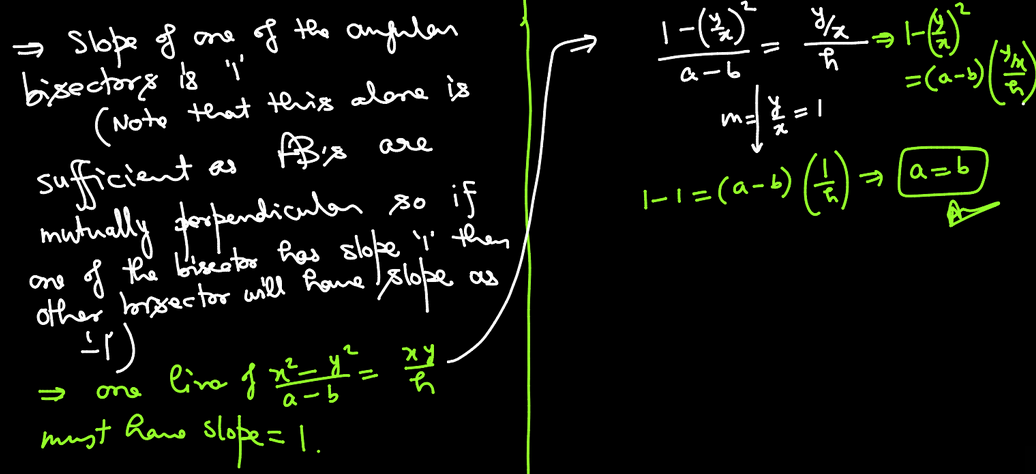 ⇒ Slope of one of the angular
bisectors is '1'
(Note that this alone is
sufficient as AB's are
mutually perpendicular so if
one of the bisector has slope '1' then
other bisector will have slope as
'-1')
⇒ one line of \frac{x^2 - y^2}{a-b} = \frac{xy}{h}
must have slope = 1.
⇒ \frac{1-(\frac{y}{x})^2}{a-b} = \frac{y/x}{h} ⇒ 1-(\frac{y}{x})^2
= (a-b) (\frac{y/x}{h})
m = \frac{y}{x} = 1
1-1 = (a-b) (\frac{1}{h}) ⇒ a = b